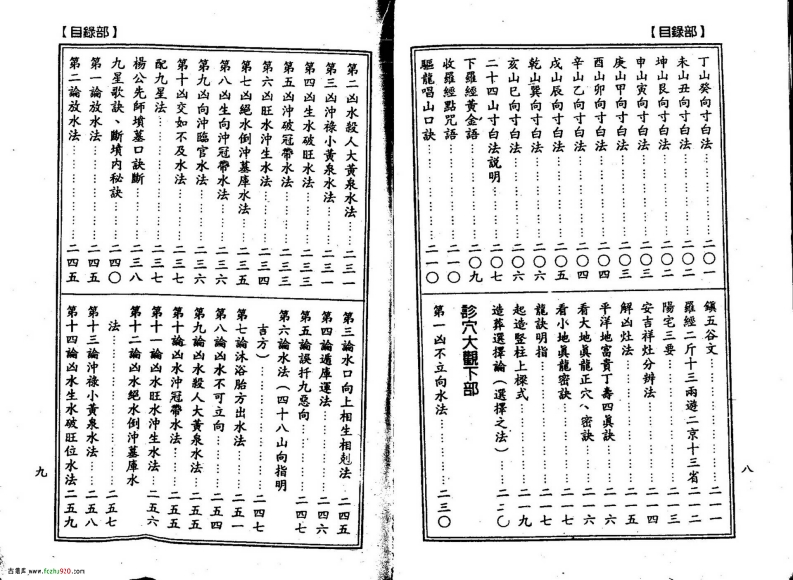 【目錄部】
丁山癸向寸白法……二〇一
未山丑向寸白法……二〇二
坤山艮向寸白法……二〇二
申山寅向寸白法……二〇三
庚山甲向寸白法……二〇三
酉山卯向寸白法……二〇四
辛山乙向寸白法……二〇四
戌山辰向寸白法……二〇五
乾山巽向寸白法……二〇六
亥山巳向寸白法……二〇六
二十四山寸白法說明……二〇七
下羅經黃金語……二〇九
收羅經點咒語……二一〇
驅龍唱山口訣……二一〇
鎮五谷文……二一一
羅經二斤十三兩遊二京十三省……二一二
陽宅三要……二一三
安吉祥灶分辨法……二一四
解凶灶法……二一五
平洋地富貴丁壽四眞訣……二一六
看大地眞龍正穴、密訣……二一六
看小地眞龍密訣……二一七
龍訣明指……二一八
起造竪柱上樑式……二一九
造葬選擇論(選擇之法)……二二〇
診穴大觀下部
第一凶不立向水法……二三〇
八
【目錄部】
第二凶水殺人大黃泉水法……二三一
第三凶沖祿小黃泉水法……二三一
第四凶生水破旺水法……二三三
第五凶沖破冠帶水法……二三三
第六凶旺水沖生水法……二三四
第七凶絕水倒沖墓庫水法……二三五
第八凶生向沖冠帶水法……二三六
第九凶向沖臨官水法……二三六
第十凶交如不及水法……二三七
配九星法……二三七
楊公先師墳墓口訣斷……二三八
九星歌訣、斷墳內秘訣……二四〇
第一論放水法……二四五
第二論放水法……二四五
第三論水口向上相生相剋法……二四五
第四論遁庫運法……二四六
第五論誤扦九惡向……二四七
第六論水法(四十八山向指明
吉方)……二四七
第七論沐浴胎方出水法……二五一
第八論凶水不可立向……二五二
第九論凶水殺人大黃泉水法……二五四
第十論凶水沖冠帶水法……二五五
第十一論凶水旺水沖生水法……二五六
第十二論凶水絕水倒沖墓庫水
法……二五七
第十三論沖祿小黃泉水法……二五八
第十四論凶水生水破旺位水法……二五九
九
古易庫 www.fczhy920.com